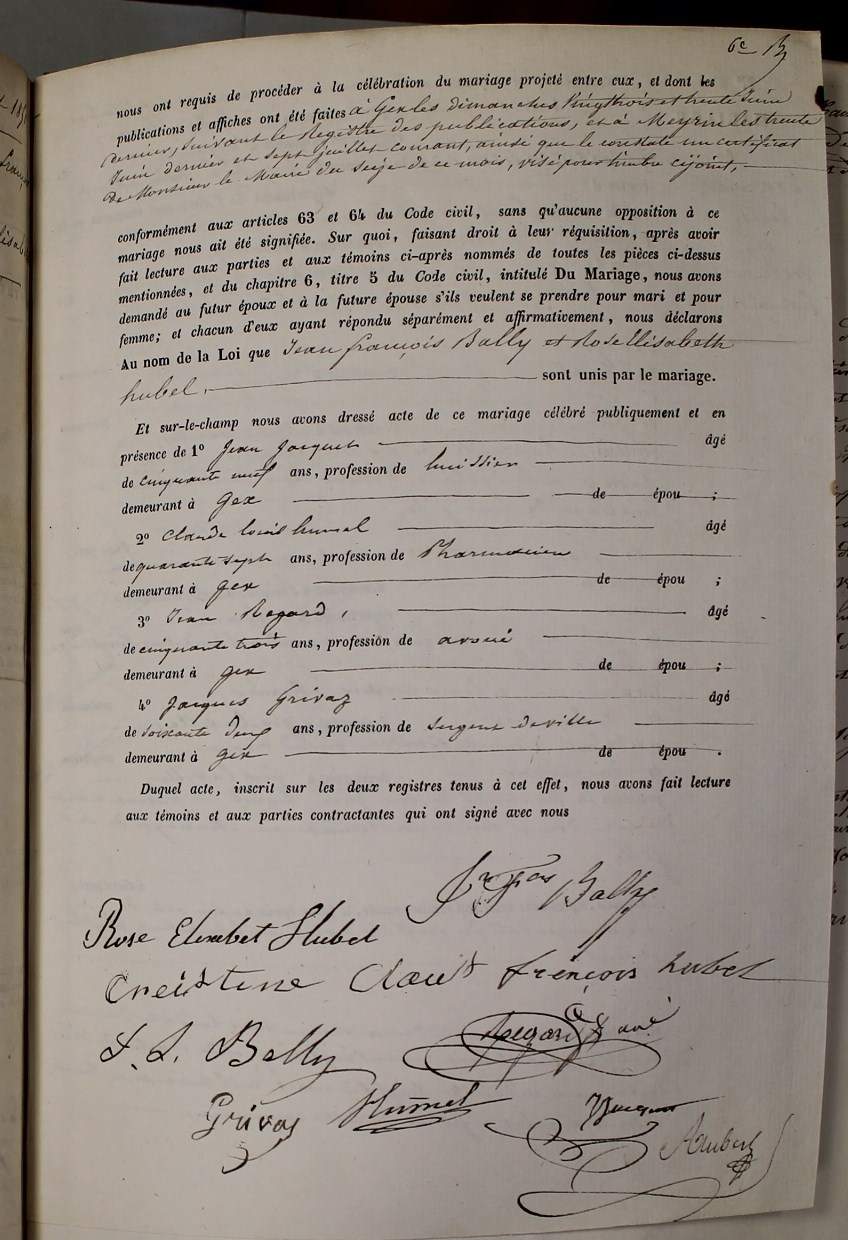 6e
nous ont requis de procéder à la célébration du mariage projeté entre eux, et dont les
publications et affiches ont été faites à Gex les dimanches vingt trois et trente Juin
dernier, suivant le Registre des publications, et à Meyrin les trente
Juin dernier et sept juillet courant, ainsi que le constate un certificat
de Monsieur le Maire du seize de ce mois, visé pour timbre cijoint,
conformément aux articles 63 et 64 du Code civil, sans qu'aucune opposition à ce
mariage nous ait été signifiée. Sur quoi, faisant droit à leur réquisition, après avoir
fait lecture aux parties et aux témoins ci-après nommés de toutes les pièces ci-dessus
mentionnées, et du chapitre 6, titre 5 du Code civil, intitulé Du Mariage, nous avons
demandé au futur époux et à la future épouse s'ils veulent se prendre pour mari et pour
femme; et chacun d'eux ayant répondu séparément et affirmativement, nous déclarons
Au nom de la Loi que Jean françois Bally et Rose Elisabeth
hubel. sont unis par le mariage.
Et sur-le-champ nous avons dressé acte de ce mariage célébré publiquement et en
présence de 1º Jean Jacquet âgé
de cinquante neuf ans, profession de huissier
demeurant à Gex de épou ;
2º Claude louis humel âgé
de quarante sept ans, profession de Pharmacien
demeurant à gex de épou ;
3º Jean Regard, âgé
de cinquante trois ans, profession de avoué
demeurant à gex de épou ;
4º Jacques Grivaz âgé
de soixante deux ans, profession de sergent de ville
demeurant à gex de épou .
Duquel acte, inscrit sur les deux registres tenus à cet effet, nous avons fait lecture
aux témoins et aux parties contractantes qui ont signé avec nous
Jn fçois Bally
Rose Elisabet Hubel
françois hubel
Bally
Regard avé
Grivaz Humel Jacquet